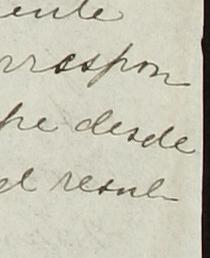 ente
rrespon
pe desde
el resul-